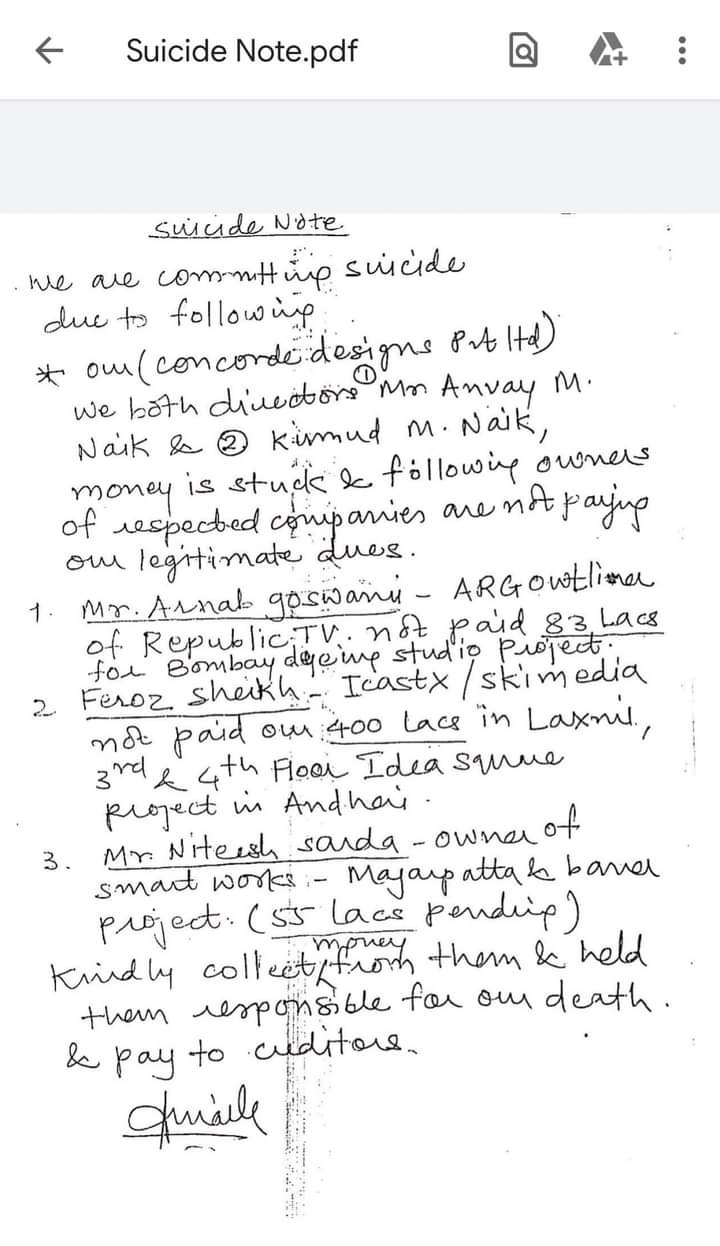 Suicide Note.pdf
Suicide Note
we are committing suicide
due to following
* our (concorde designs Pvt ltd)
we both directors ① Mr Anvay M.
Naik & ② Kumud M. Naik,
money is stuck & following owners
of respected companies are not paying
our legitimate dues.
1. Mr. Arnab goswami - ARG Outlier
of Republic TV. not paid 83 Lacs
for Bombay dyeing studio Project.
2 Feroz sheikh - Icastx / skimedia
not paid our 400 Lacs in Laxmi,
3rd & 4th Floor Idea square
project in Andheri.
3. Mr. Niteish sarda - owner of
smart works - Magarpatta & baner
project. (55 lacs pending)
Kindly collect money from them & held
them responsible for our death.
& pay to creditors.